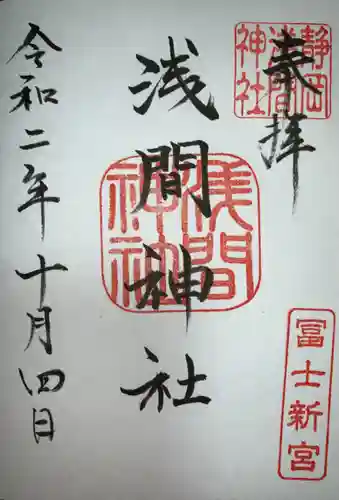 奉拝
静岡
浅間
神社
浅間神社
浅間
神社
冨士新宮
令和二年十月四日